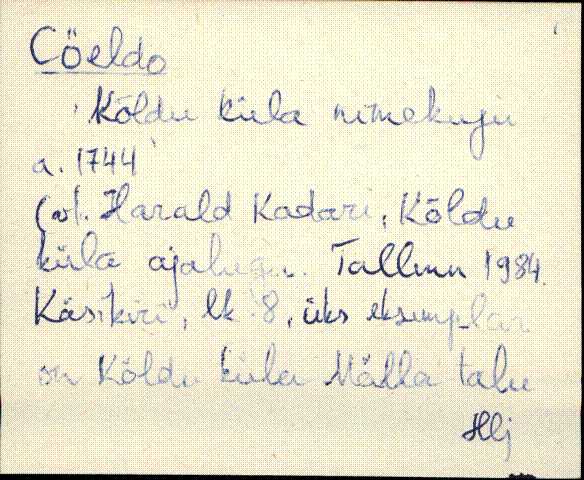 Cöeldo
'Kõldu küla nimekuju
a. 1744'
(vt. Harald Kadari, Kõldu
küla ajalugu. Tallinn 1984.
Käsikiri, lk 8, üks eksemplar
on Kõldu küla Mälla talu
Hlj